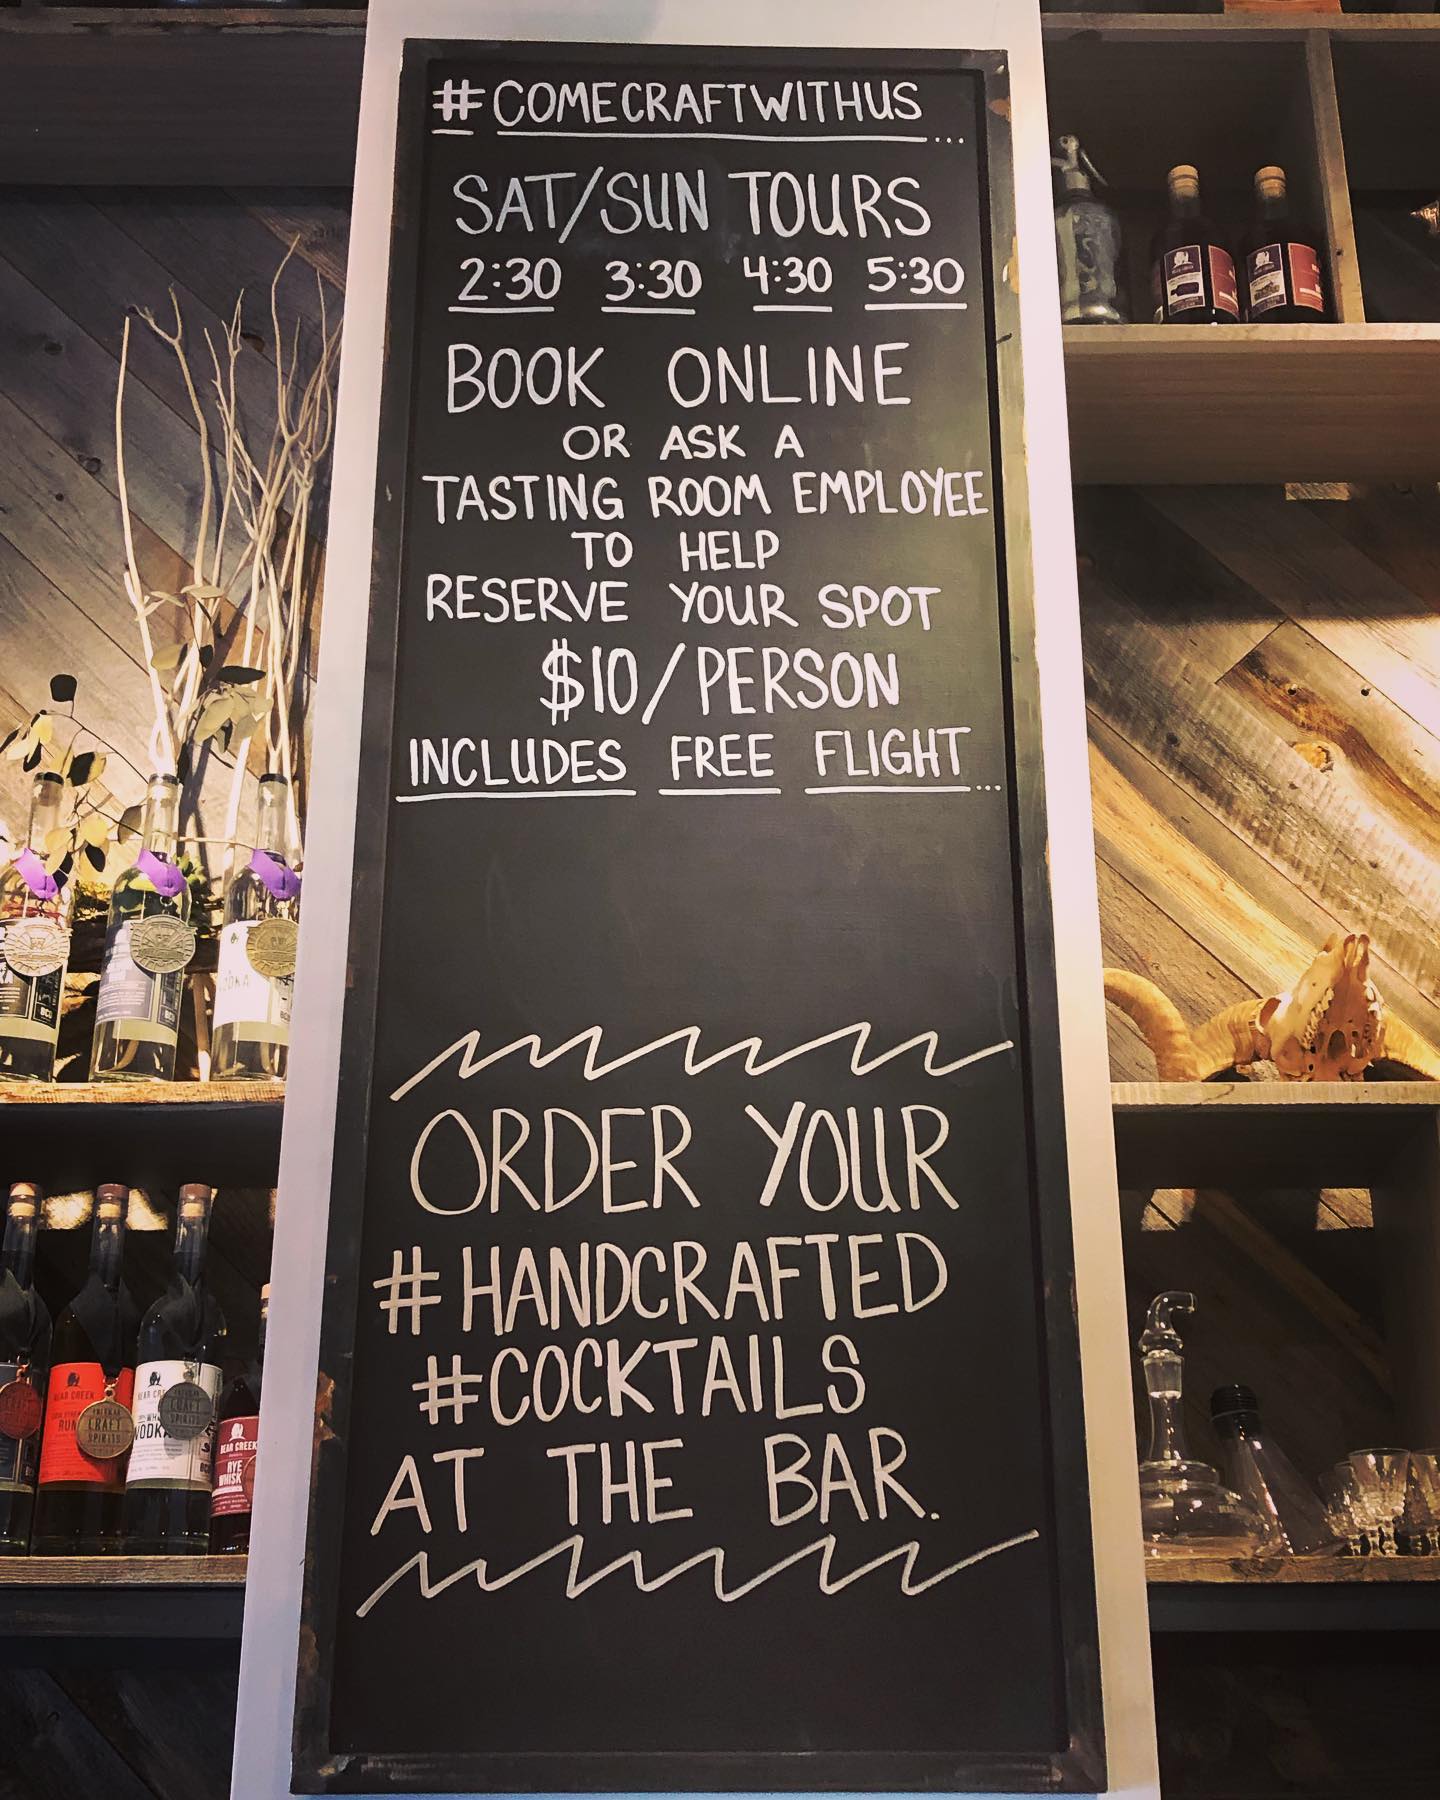 #COMECRAFTWITHUS...
SAT/SUN TOURS
2:30 3:30 4:30 5:30
BOOK ONLINE
OR ASK A
TASTING ROOM EMPLOYEE
TO HELP
RESERVE YOUR SPOT
$10/PERSON
INCLUDES FREE FLIGHT...
ORDER YOUR
#HANDCRAFTED
#COCKTAILS
AT THE BAR.
BEAR CREEK
RUM
CRAFT
SPIRITS
BEAR CREEK
VODKA
CRAFT
SPIRITS
BEAR CREEK
RYE
WHISK